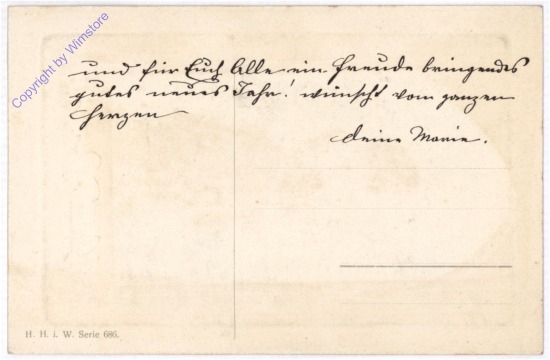 und für Euch Alle ein Freude bringendes
gutes neues Jahr! wünscht vom ganzen
Herzen
deine Marie.
H. H. i. W. Serie 686.
Copyright by Wimstore